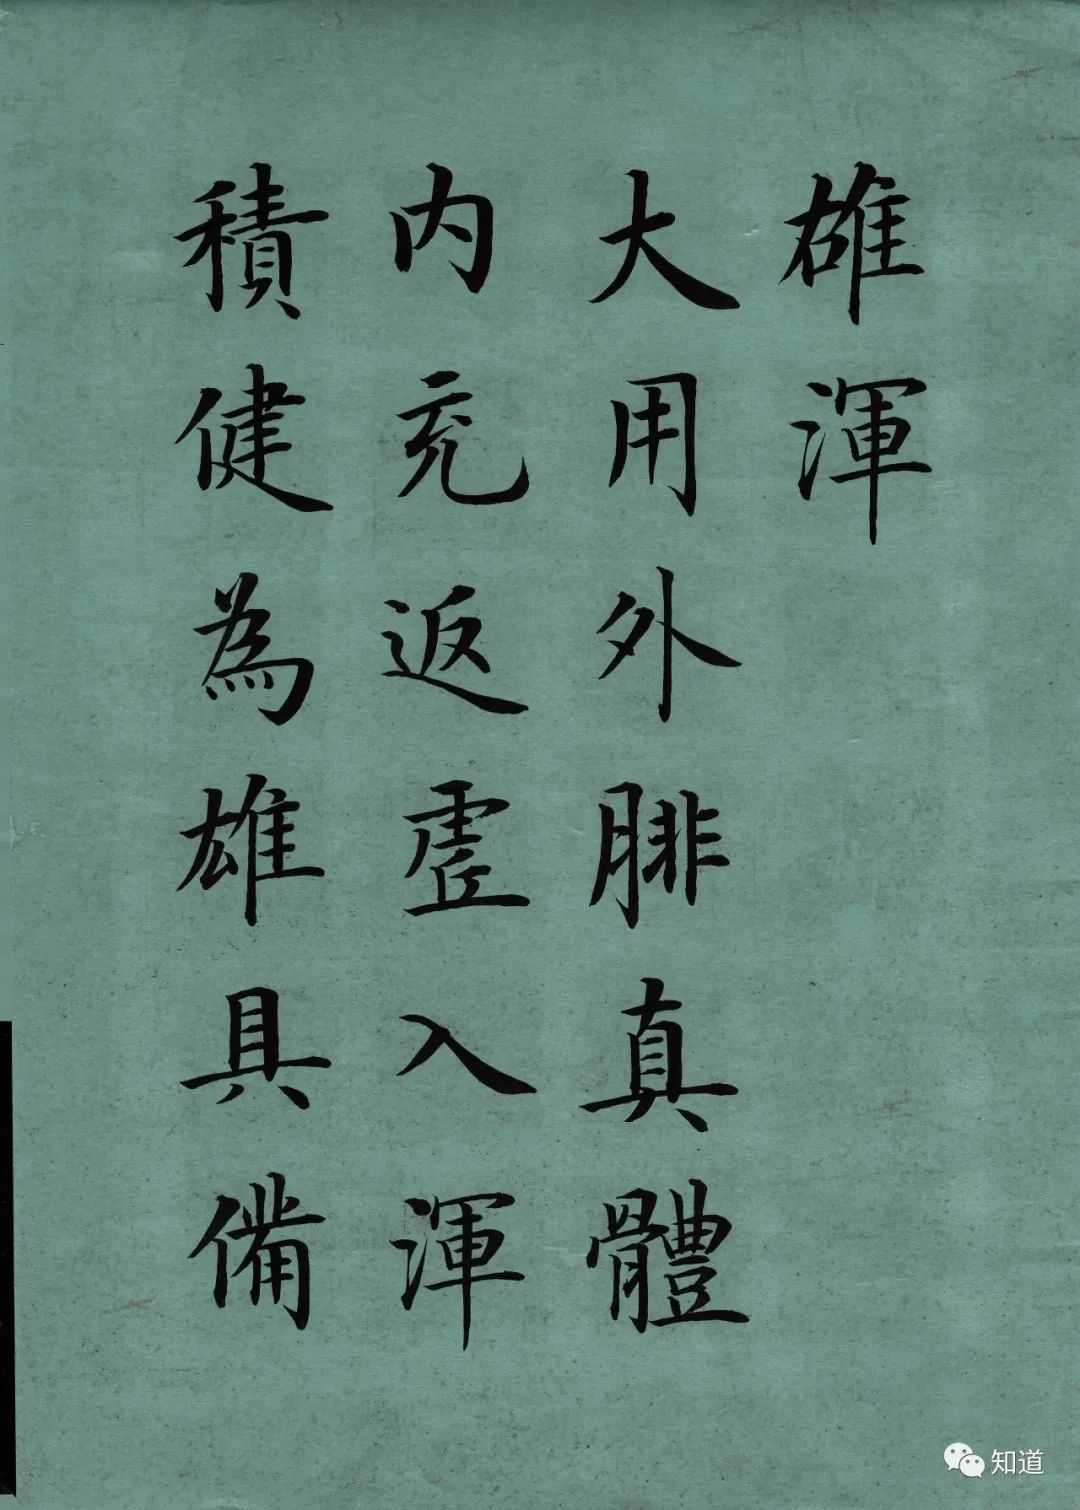 雄渾
大用外腓真體
内充返虛入渾
積健為雄具備
知道